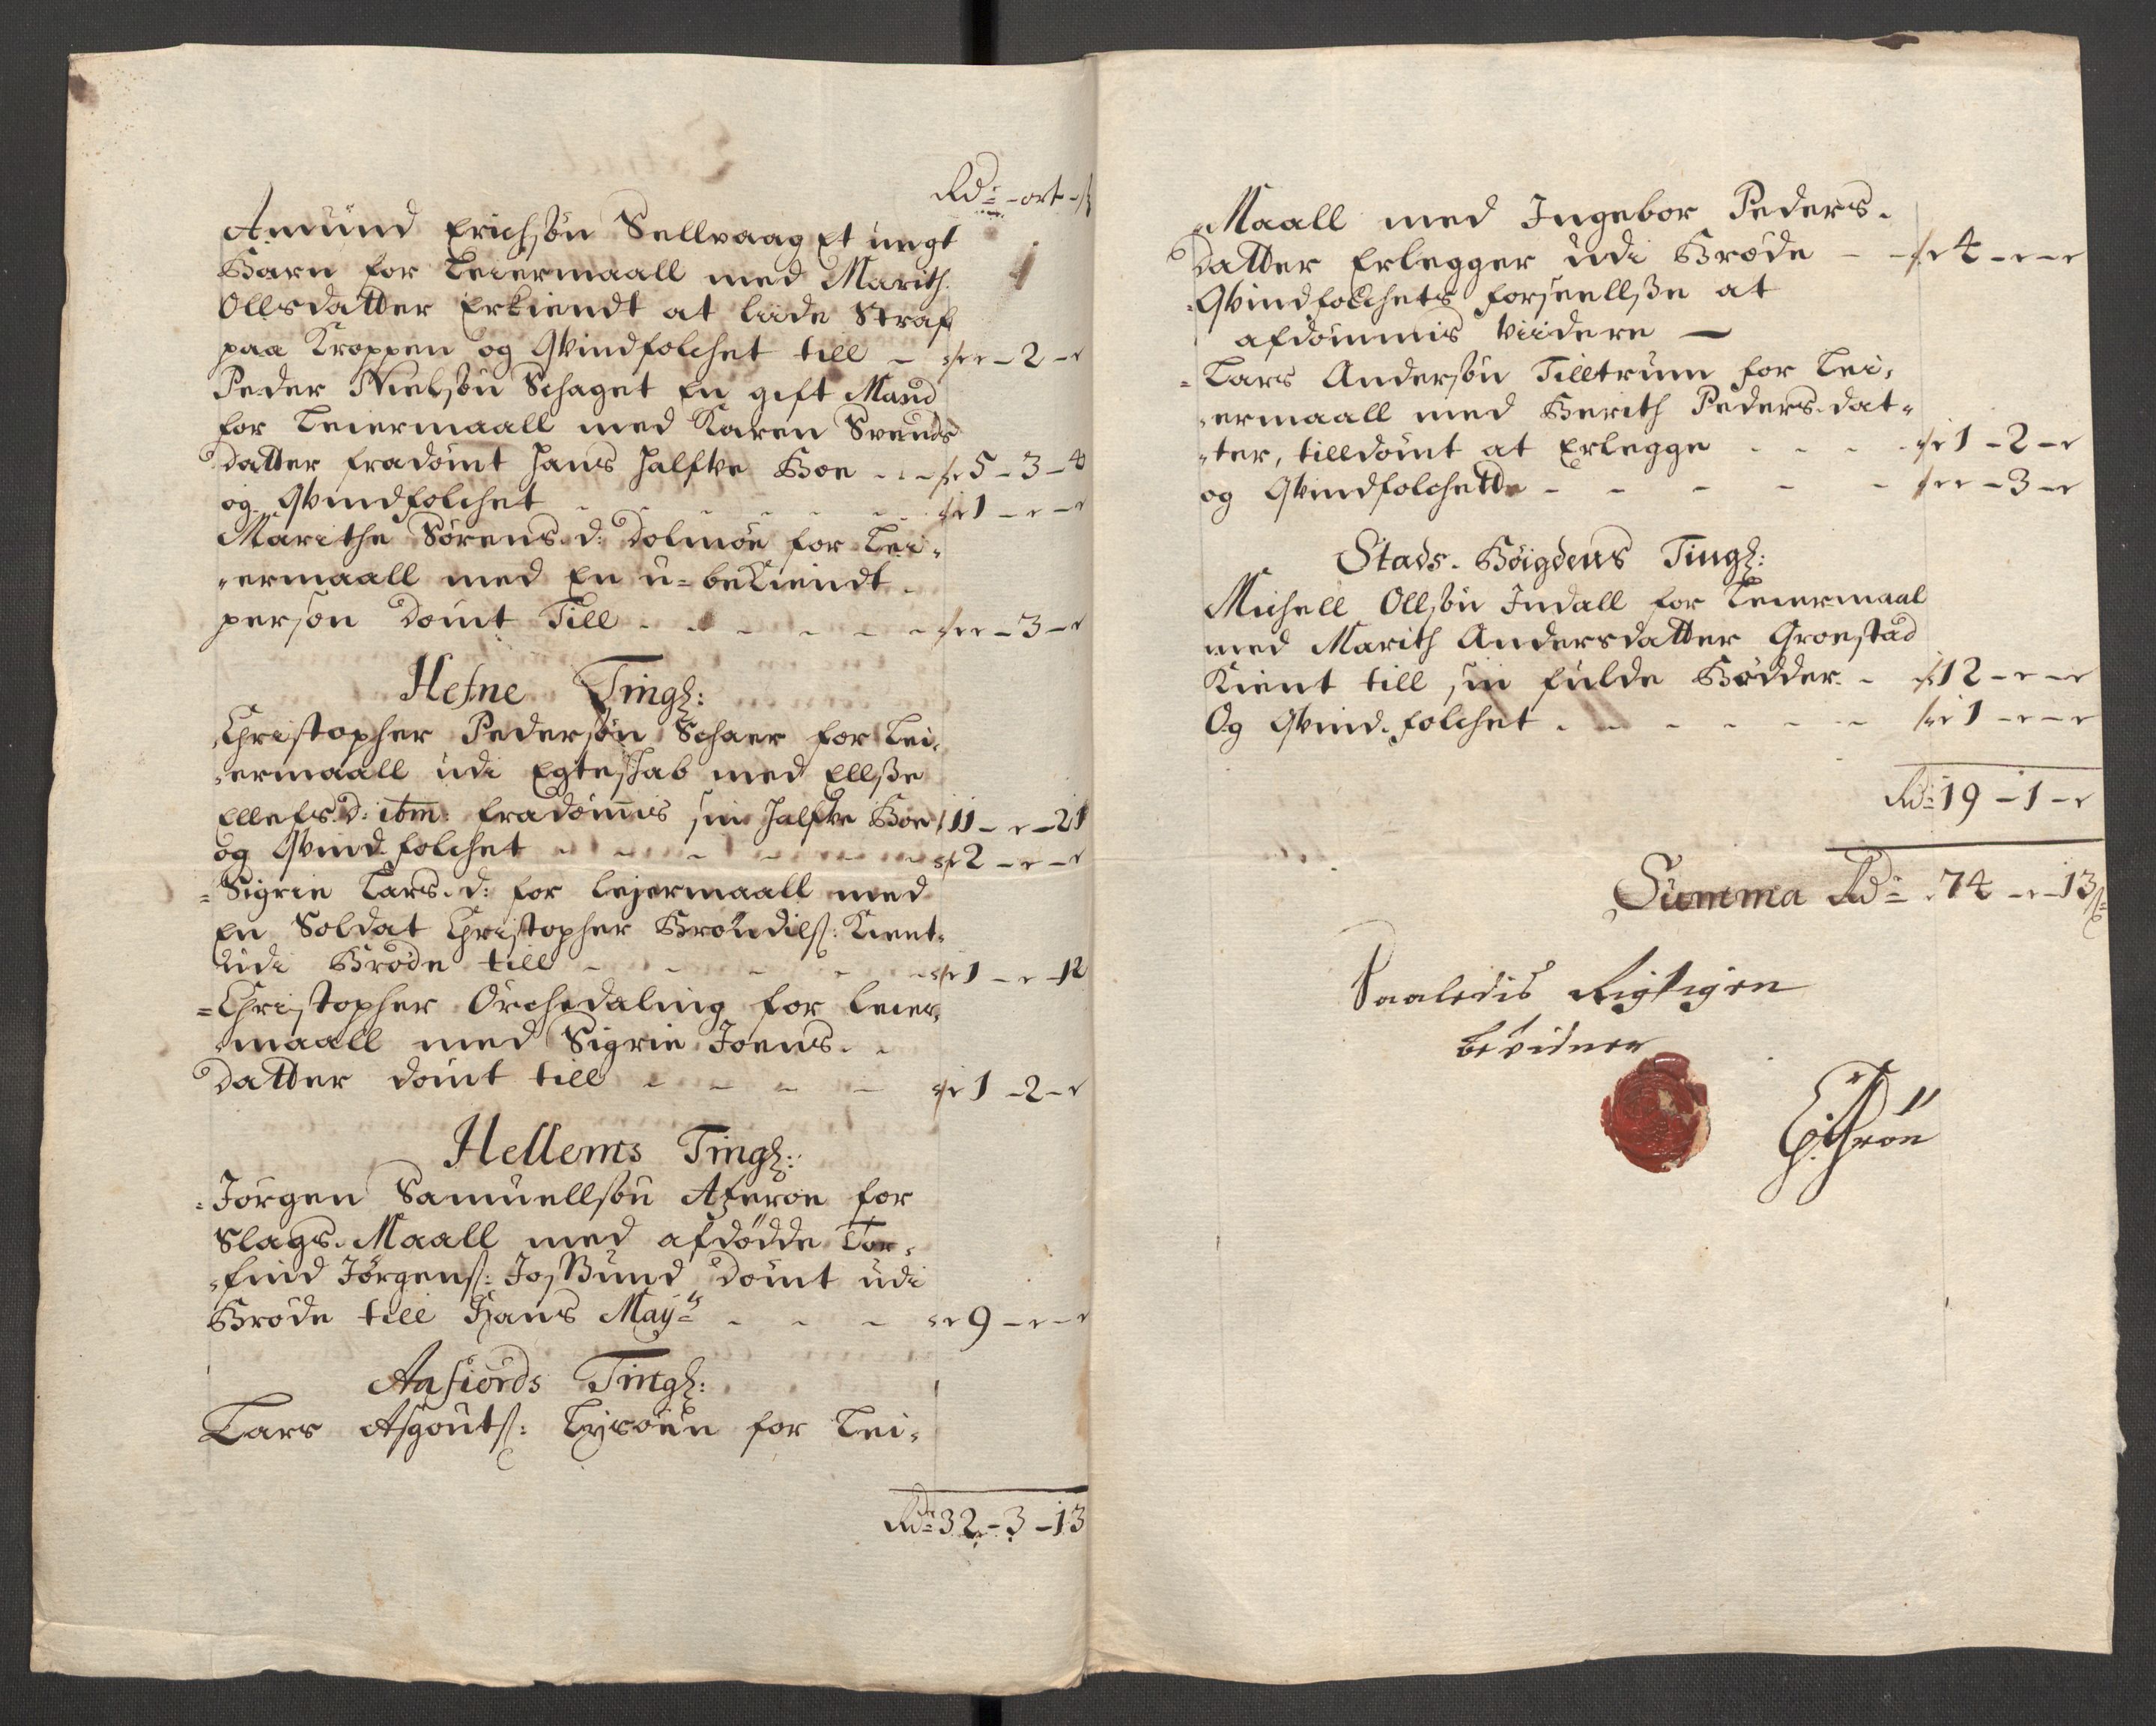 Rdr - ort - ß
Amund Erichsøn Sellvaag Et ungt
Barn for Leiermaall med Marith
Ollsdatter Erkiendt at liide Straf
paa Kroppen og Qvindfolchet till - - 2 -
Peder Nielsøn Schaget En gift Mand
for Leiermaall med Karen Svends
datter fradømt Hans Halfve Boe - - 5 - 3 - 4
og Qvindfolchet - - - - - 1 - -
Marithe Sørens. d: Dolmøe for Lei,
,ermaall med En u=bekiendt
person Dømt Till - - - - - 3 -
Hefne Tingl:
Christopher Pedersøn Schaer for Lei,
,ermaall udi Egteskab med Ellsße
Ellefs. d: ibm: fradømmis sin Halfve Boe 11 - - 21
og Qvind folchet - - - - - 2 - -
= Sigrie Lars. d: for lejermaall med
En Soldat Christopher Brøndils: Kient
udi Brøde till - - - - 1 - - 12
= Christopher Orchedaling for leier,
,maall med Sigrie Joens. -
datter dømt till - - - - 1 - 2 -
Hellems Tingl:
= Jørgen Samuellsøn Azerøe for
Slags. Maall med afdødde Tor,
,find Jørgens: Jossund dømt udi
Brøde till Hans Mayts - - - 9 - -
Aafiords Tingl:
Lars Asgouts: Lysøen for Lei,
Rdr 32 - 3 - 13
,Maall med Ingebor Peders.
datter Erlegger udi Brøde - - 4 - -
Qvindfolchets forseellsße at
afdømmis viidere —
= Lars Andersøn Tilltrum for Lei,
,ermaall med Berith Peders. dat,
,ter, tilldømt at Erlegge - - - 1 - 2 -
og Qvindfolchette - - - - - - 3 -
Stads. Bøigdens Tingl:
Michell Ollsøn Indall for Leiermaal
med Marith Andersdatter Groestad
Kient till sin fulde Bødder. - 12 - -
Og Qvind. folchet - - - - - 1 - -
Rdr 19 - 1 -
Summa Rdr 74 - - 13 ß
Saaledis Rigtigen
bevidner